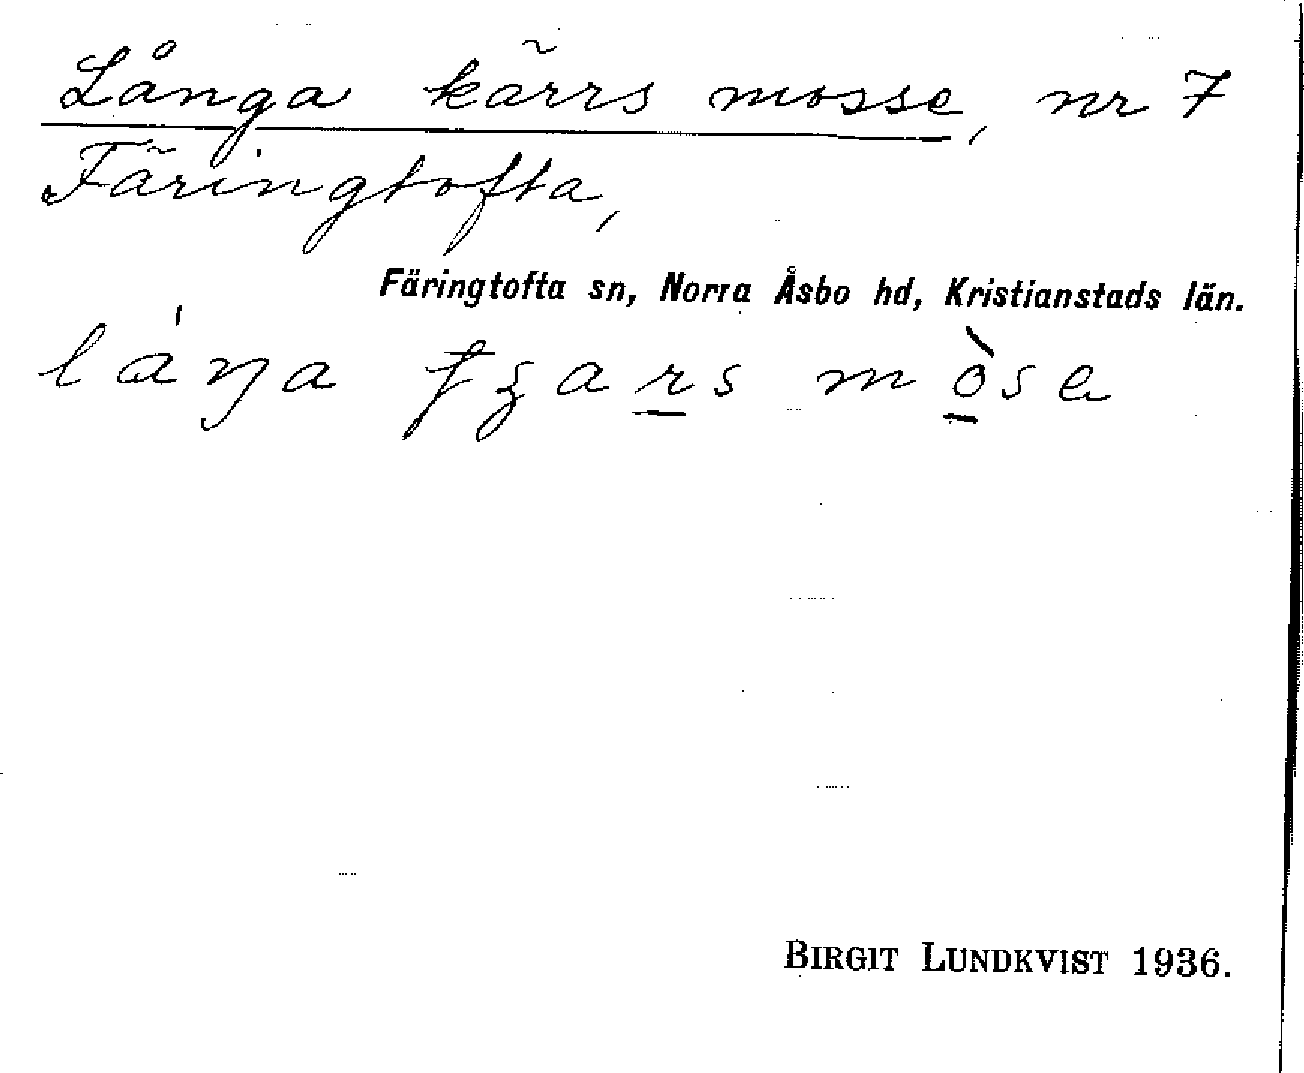 Långa kärrs mosse, nr 7
Färingtofta,
Färingtofta sn, Norra Åsbo hd, Kristianstads län.
láŋa mòse
BIRGIT LUNDKVIST 1936.